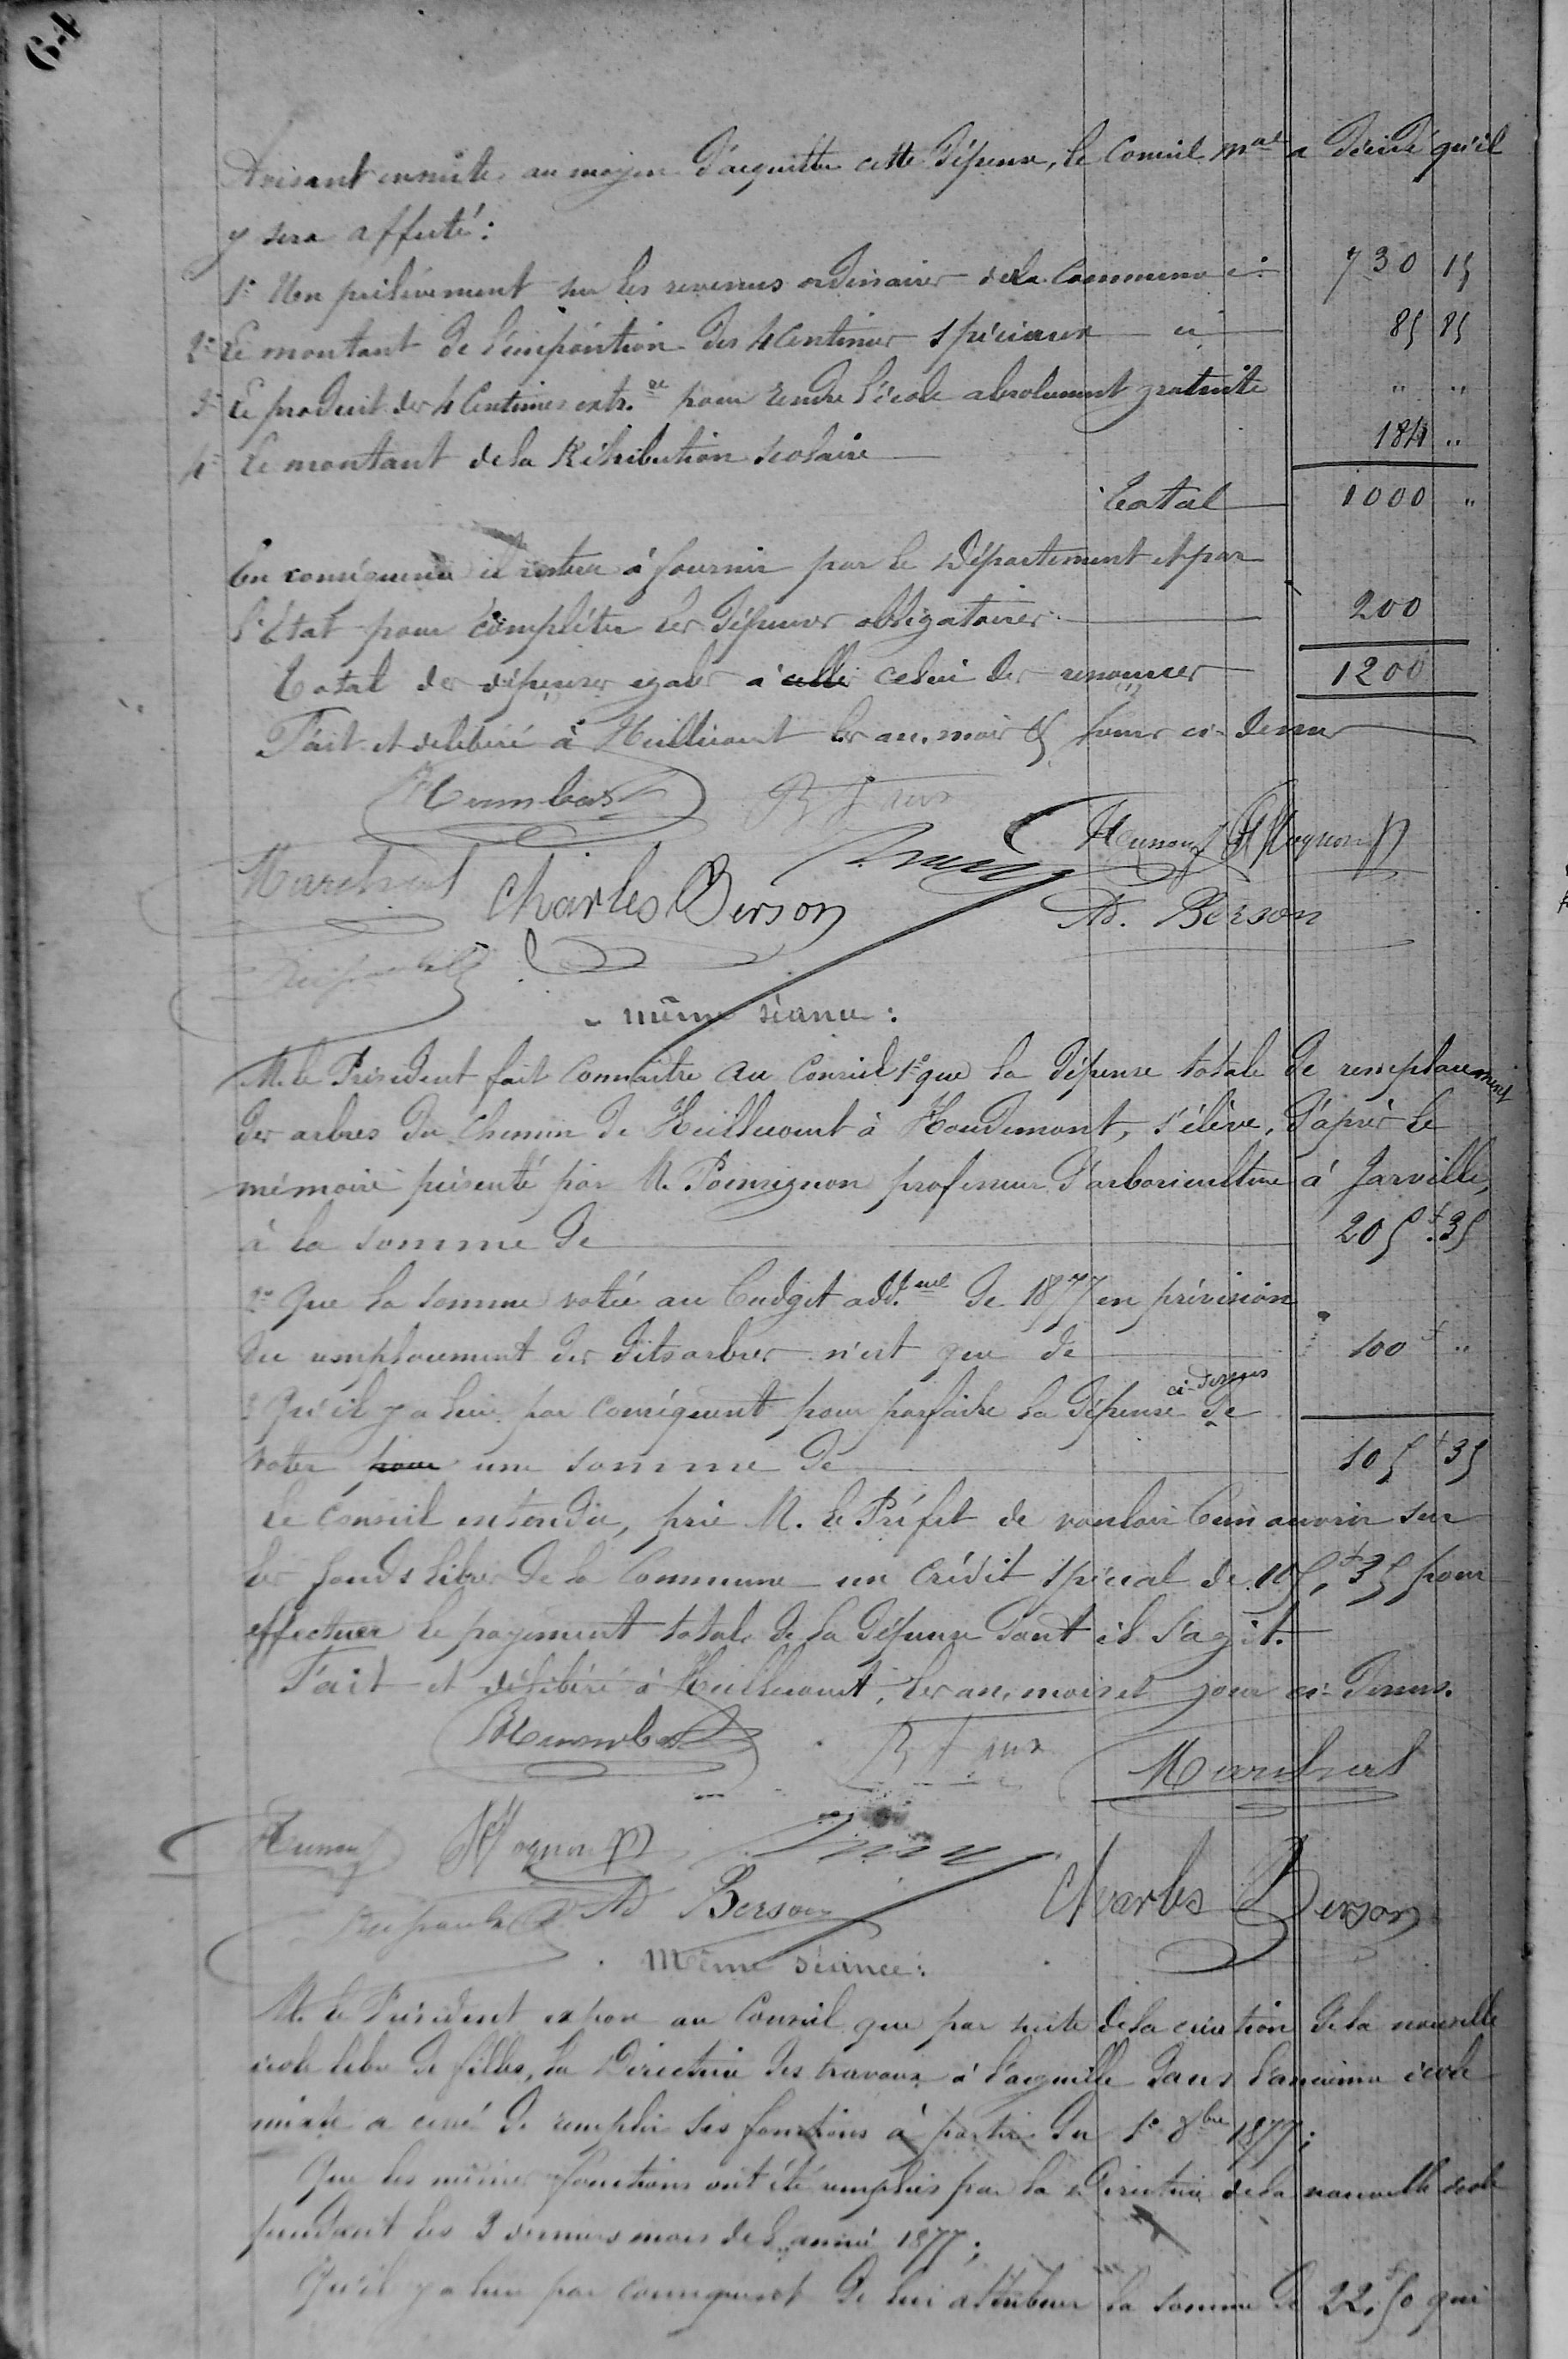 64
Avisant ensuite au moyen d'acquitter cette dépense, le Conseil mal a décidé qu'il
y sera affecté :
1° Un prélèvement sur les revenus ordinaires de la Commune ci 730 15
2° Le montant de l'imposition des 4 Centimes spéciaux ci 85 85
3° Le produit des 4 Centimes extr. re pour rendre l'école absolument gratuite " "
4° Le montant de la Rétribution scolaire 184 "
Total 1000 "
En conséquence il restera à fournir par le Département et par
l'Etat pour compléter les dépenses obligatoires 200
Total des dépenses égales à celle celui des ressources 1200
Fait et délibéré à Heillecourt les an, mois & jour ci-dessus
Humbert
Marchal Charles Berson Ad. Berson
même séance :
M. le Président fait connaître au Conseil 1° que la dépense totale de remplacement
des arbres du Chemin de Heillecourt à Houdemont, s'élève, d'après le
mémoire présenté par M. Poinsignon professeur d'arboriculture à Jarville,
à la somme de 205 f. 35
2° Que la somme votée au budget add. nel de 1877 en prévision
du remplacement des dits arbres n'est que de 100 f "
3° Qu'il y a lieu par conséquent pour parfaire la dépense ci-dessus de
voter pour une somme de 105 f 35
Le Conseil entendu, prie M. le Préfet de vouloir bien ouvrir sur
les fonds libres de la Commune un crédit spécial de 105, f 35 pour
effectuer le payement total de la dépense dont il s'agit.
Fait et délibéré à Heillecourt, les an, mois et jour ci-dessus.
Humbert Marchal
Ad Berson Charles Berson
Même séance :
M. le Président expose au Conseil que par suite de la création de la nouvelle
école libre de filles, la Directrice des travaux à l'aiguille dans l'ancienne école
mixte a cessé de remplir ses fonctions à partir du 1° 8bre 1877 ;
Que les mêmes fonctions ont été remplies par la Directrice de la nouvelle école
pendant les 3 derniers mois de l'année 1877 ;
Qu'il y a lieu par conséquent de lui attribuer la somme de 22, f 50 qui